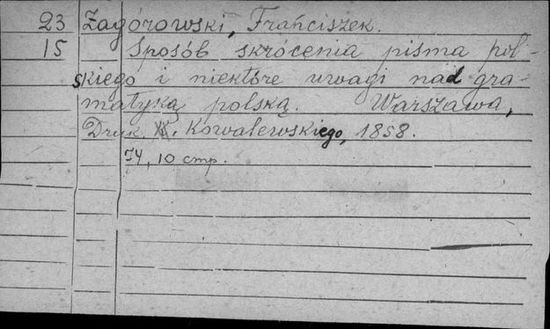 23 Zagórowski, Frańciszek.
15 Sposób skrócenia pisma pol-
skiego i niektóre uwagi nad gra-
matyką polską. Warszawa,
Druk. Kowalewskiego, 1858.
74, 10 стр.